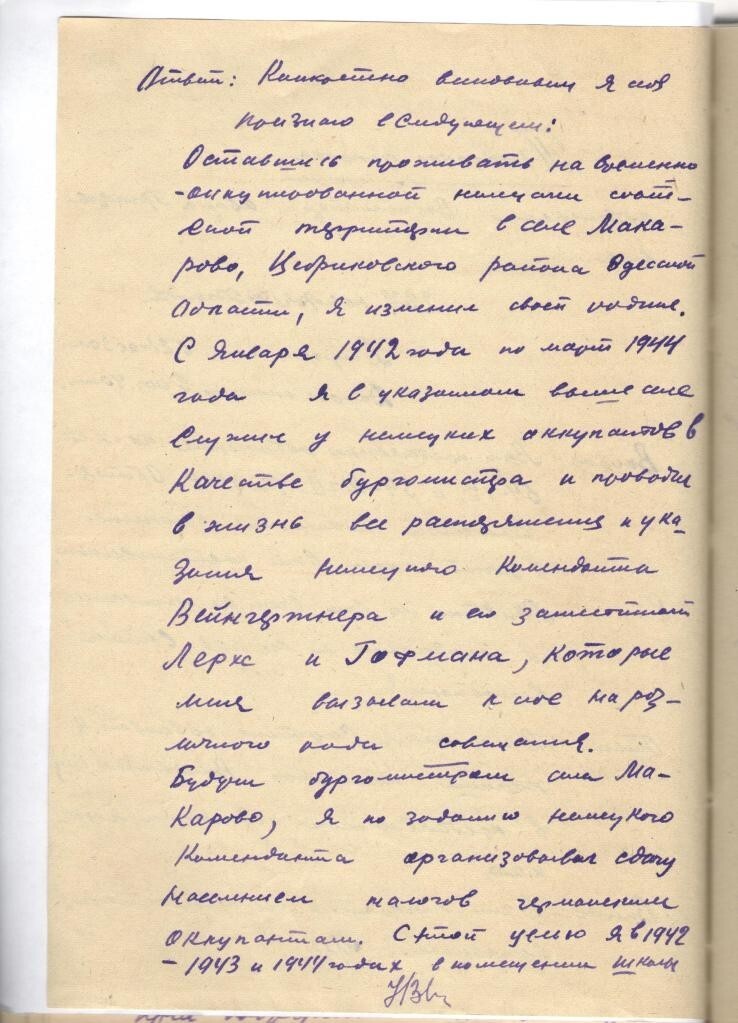 Ответ: Конкретно виновным я себя
признаю в следующем:
Оставшись проживать на временно
-оккупированной немцами совет-
ской территории в селе Мака-
рово, Цебриковского района Одесской
области, я изменил своей родине.
С января 1942 года по март 1944
года я в указанном выше селе
служил у немецких оккупантов в
качестве бургомистра и проводил
в жизнь все распоряжения и ука-
зания немецкого коменданта
Вейнгержнера и его заместителей
Лерхе и Гофмана, которые
меня вызывали к себе на раз-
личного рода совещания.
Будучи бургомистром села Ма-
карово, я по заданию немецкого
коменданта организовывал сдачу
населением налогов германским
оккупантам. С этой целью я в 1942
- 1943 и 1944 годах в помещении школы